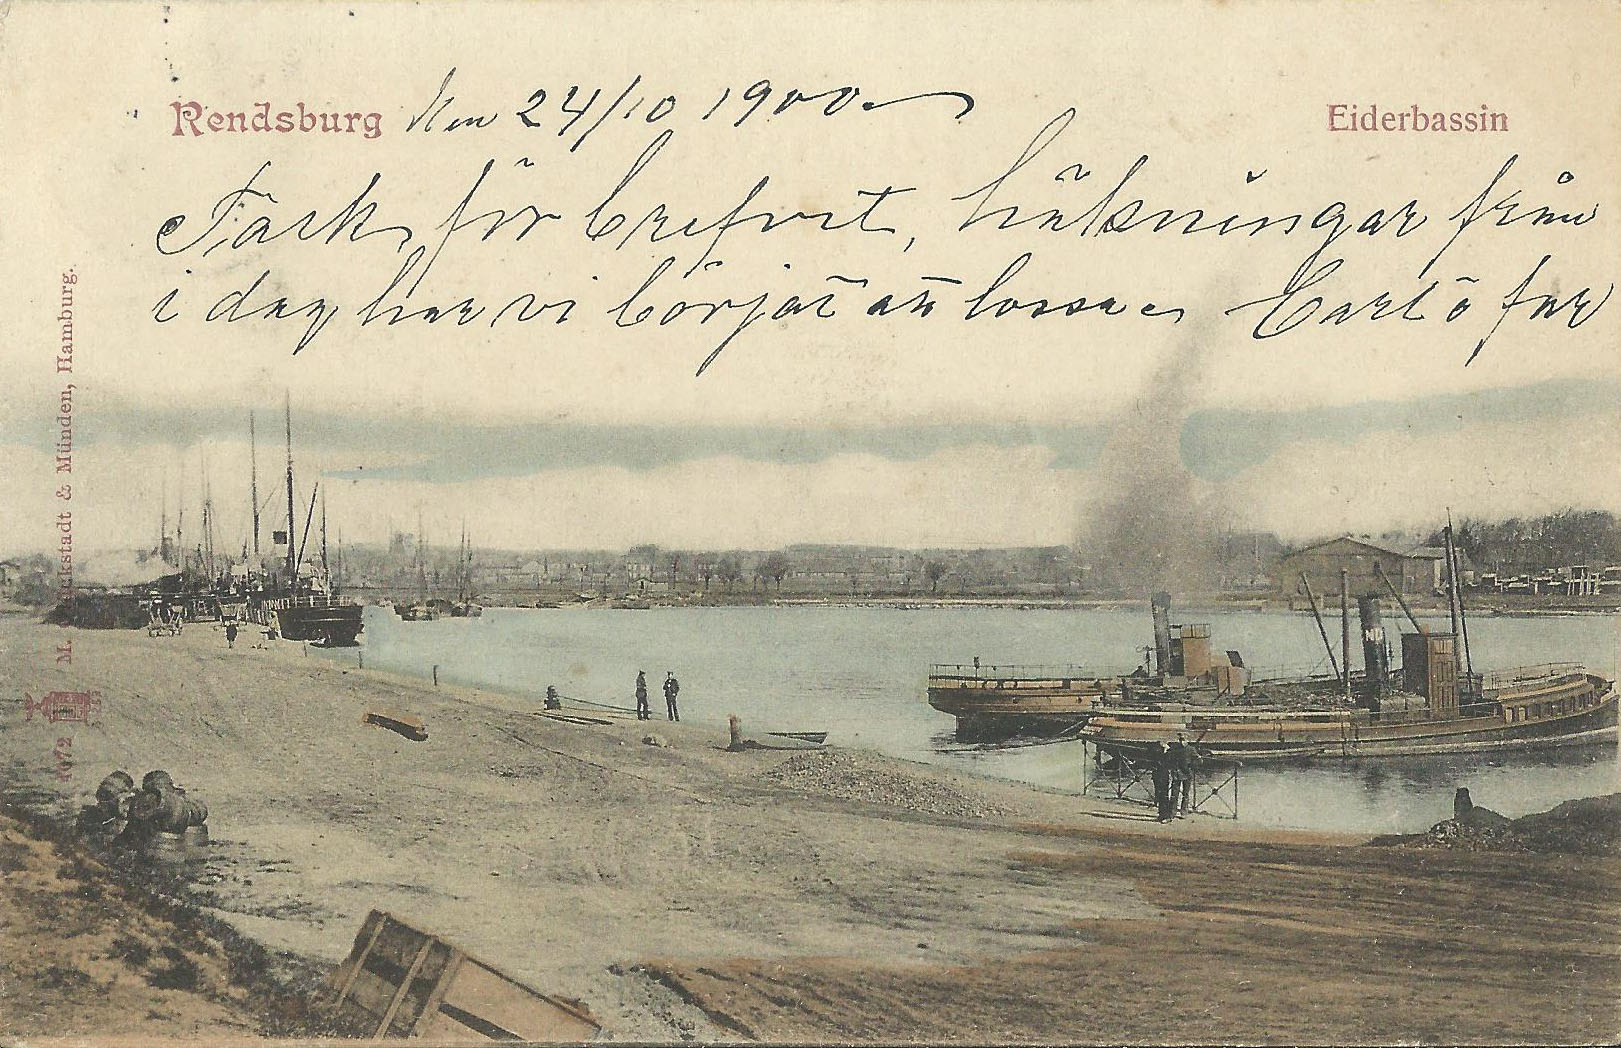 Rendsburg den 24/10 1900
Eiderbassin
Tack för brefvet, hälsningar från
i dag har vi börjat att lossa
M. Glückstadt & Münden, Hamburg.